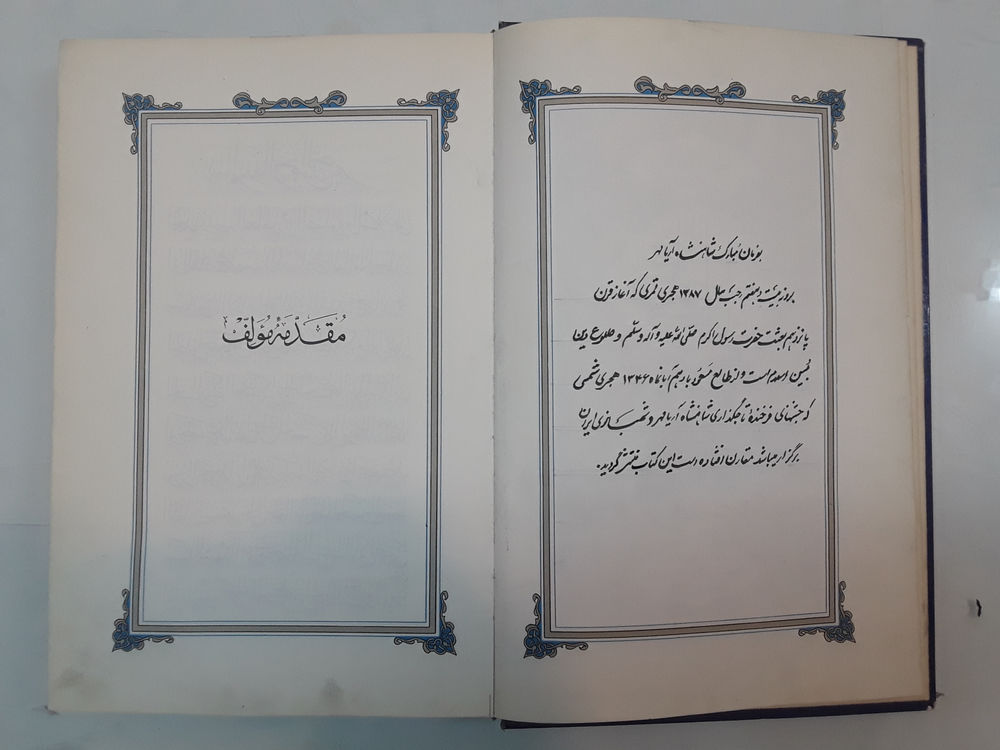 بفرمان مبارک شاهنشاه آریامهر
بروز بیست و هفتم رجب سال ۱۳۸۷ هجری قمری که آغاز قرن
پانزدهم بعثت حضرت رسول اکرم صلی الله علیه و آله و سلم و طلوع دین
مبین اسلام است و از طالع مسعود با دهم آبانماه ۱۳۴۶ هجری شمسی
که جشنهای فرخنده تاجگذاری شاهنشاه آریامهر و شهبانوی ایران
برگزار میباشد مقارن افتاده است این کتاب منتشر گردید.
مُقَدّمَهٔ مُؤَلِّفْ